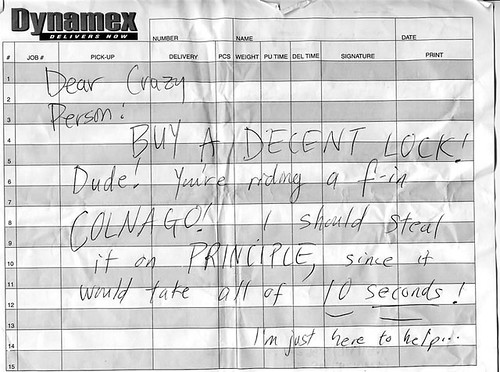 Dynamex
DELIVERS NOW
NUMBER NAME DATE
# JOB # PICK-UP DELIVERY PCS WEIGHT PU TIME DEL TIME SIGNATURE PRINT
1
2
3
4
5
6
7
8
9
10
11
12
13
14
15
Dear Crazy
Person!
BUY A DECENT LOCK!
Dude! You're riding a f-in
COLNAGO! I should steal
it on PRINCIPLE, since it
would take all of 10 seconds!
I'm just here to help...